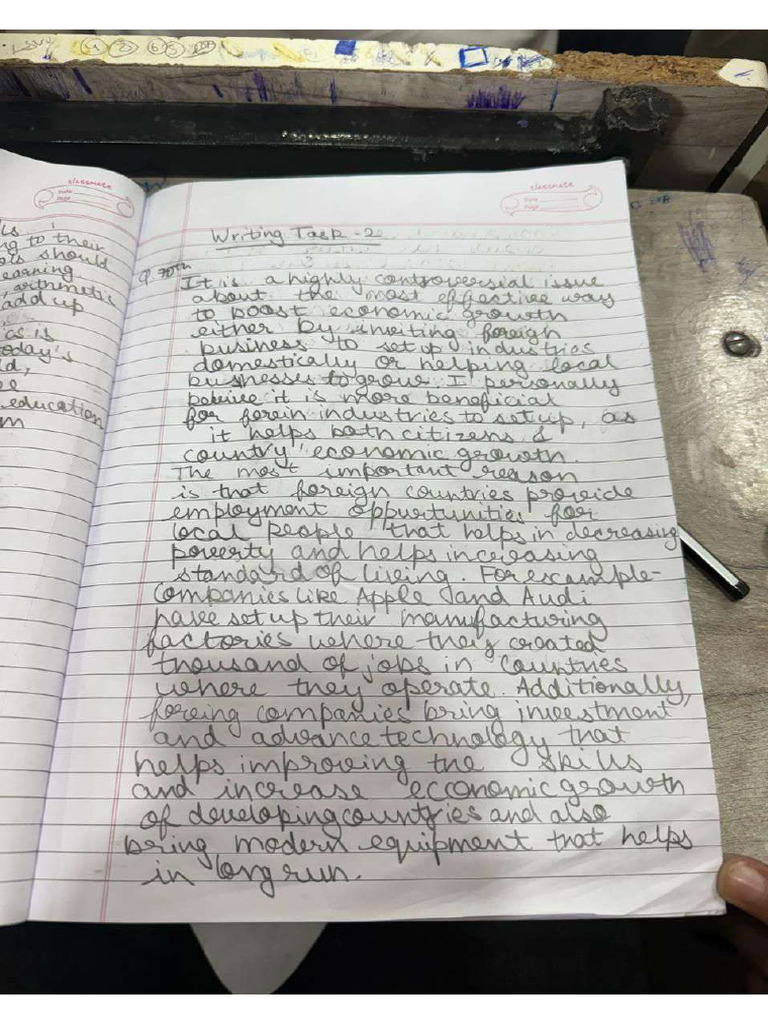 ls.
ng to their
ols should
earning
, arithmetic
add up
cs is
oday's
ld,
ee
education
m
classmate
Date
Page
classmate
Date
Page
Writing Task - 2
Q. 30th
It is a highly controversial issue
about the most effective way
to boost economic growth
either by inviting foreign
business to set up industries
domestically or helping local
businesses to grow. I personally
beleive it is more beneficial
for forein industries to setup, as
it helps both citizens &
country economic growth.
The most important reason
is that foreign countries provide
employment oppurtunities for
local people that helps in decreasing
poverty and helps increasing
standard of living. For example-
Companies like Apple and Audi
have set up their manufacturing
factories where they created
thousand of jops in countries
where they operate. Additionally,
foreing companies bring investment
and advance technology that
helps improving the skills
and increase ecconomic growth
of developing countries and also
bring modern equipment that helps
in long run.